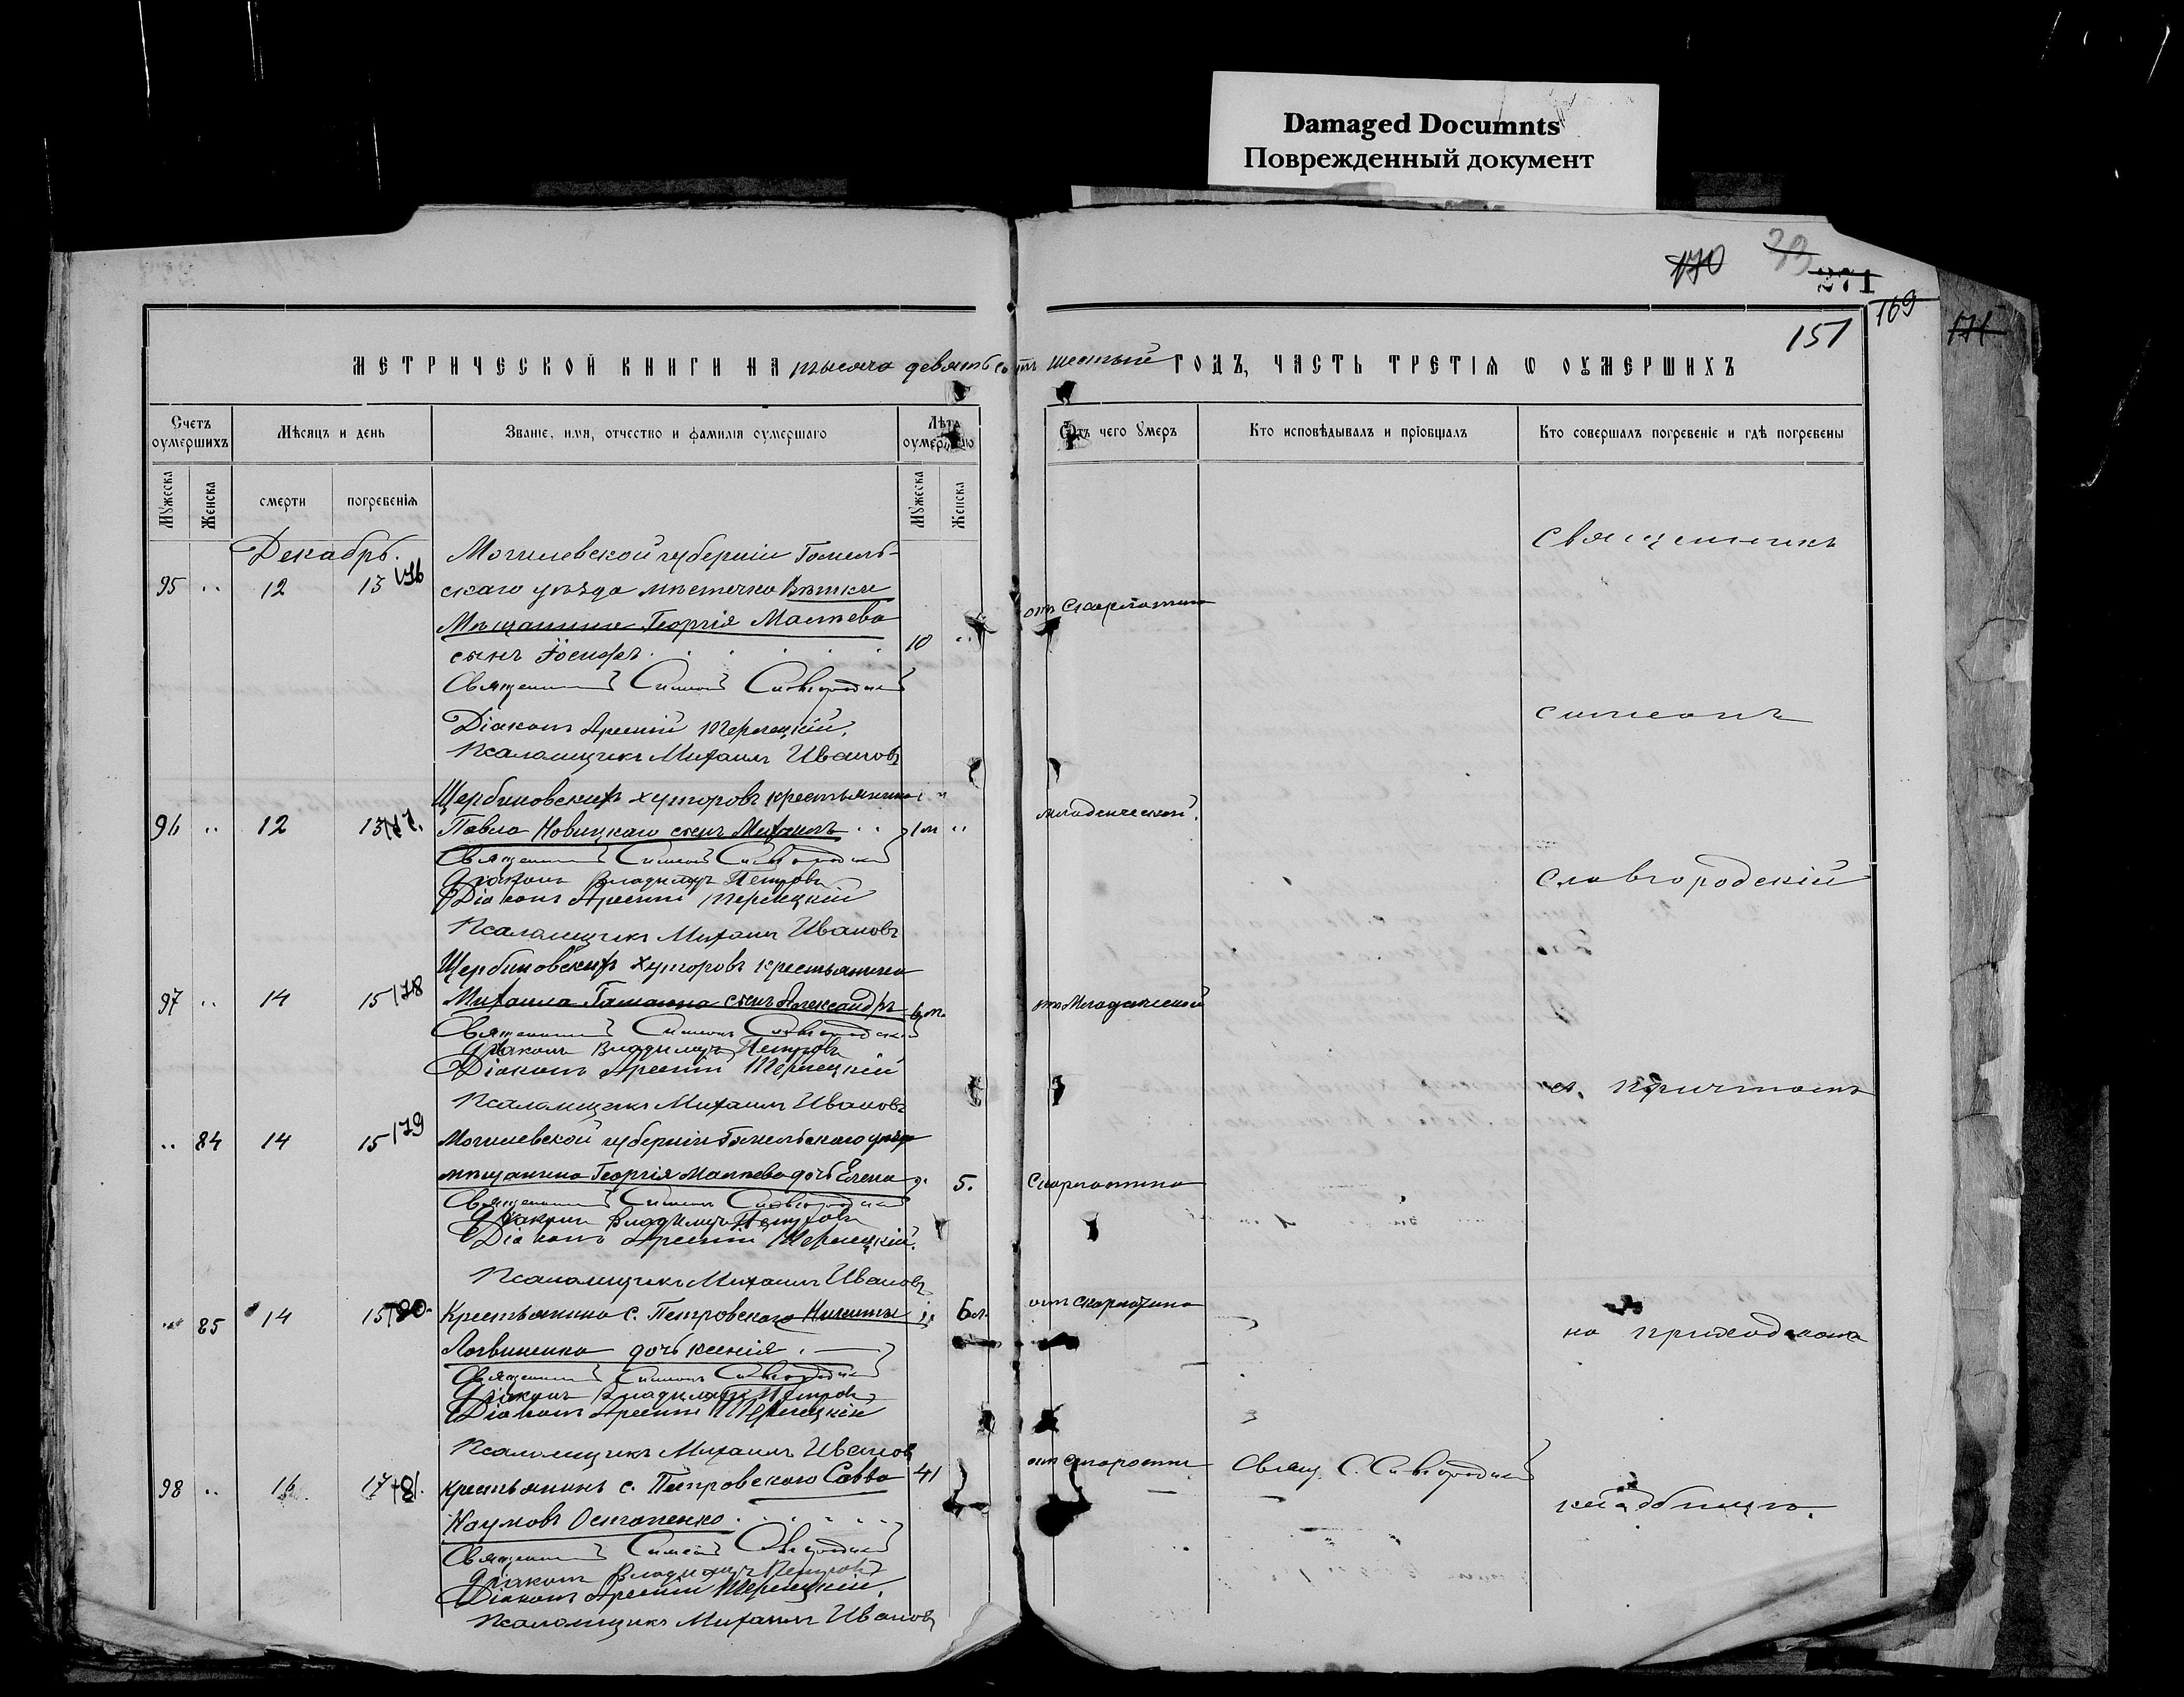 Damaged Documnts
Поврежденный документ
170
271
169
171
151
МЕТРИЧЕСКОЙ КНИГИ НА тысяча девятьсотъ шестый ГОДЪ, ЧАСТЬ ТРЕТІЯ Ѡ ОУМЕРШИХЪ
Счетъ оумершихъ
Мѣсяцъ и день
Званіе, имя, отчество и фамилія оумершаго
Лѣта оумершаго
Отъ чего Умеръ
Кто исповѣдывалъ и пріобщалъ
Кто совершалъ погребеніе и гдѣ погребены
Мужеска
Женска
смерти
погребенія
Мужеска
Женска
Декабрь.
Могилевской губерніи Гомель-
Священникъ
95 .. 12 13 176 скаго уѣзда мѣстечка Вѣтки
отъ Скарлатина
Мѣщанина Георгія Малѣева
сынъ Іосифъ 10 ..
Священникъ Симеонъ Славгородскій
Діаконъ Арсеній Терлецкій.
симеонъ
Псаломщикъ Михаилъ Ивановъ
Щербиновскихъ хуторовъ крестьянина
96 .. 12 13 177. Павла Новицкаго сынъ Михаилъ 1м ..
младенческой.
Священникъ Симеонъ Славгородскій
Діаконъ Владиміръ Петровъ
Славгородскій
Діаконъ Арсеній Терлецкій
Псаломщикъ Михаилъ Ивановъ
Щербиновскихъ хуторовъ крестьянина
97 .. 14 15 178 Михаила сынъ Александръ 6 м.
отъ Младенческой
Священникъ Симеонъ Славгородскій
Діаконъ Владиміръ Петровъ
Діаконъ Арсеній Терлецкій
с. причтомъ
Псаломщикъ Михаилъ Ивановъ
.. 84 14 15 179 Могилевской губерніи Гомельскаго уѣзда
мѣщанина Георгія Малѣева дочь Елена 5.
Скарлатина
Священникъ Симеонъ Славгородскій
Діаконъ Владиміръ Петровъ
Діаконъ Арсеній Терлецкій.
Псаломщикъ Михаилъ Ивановъ
.. 85 14 15 180. Крестьянина с. Петровскаго Никиты 6 м.
отъ скарлатина
на приходскомъ
Логвиненка дочь Ксенія
Священникъ Симеонъ Славгородскій
Діаконъ Владиміръ Петровъ
Діаконъ Арсеній Терлецкій
Псаломщикъ Михаилъ Ивановъ
98 .. 16 17 181. крестьянинъ с. Петровскаго Савва 41
Свящ. С. Славгородскій
кладбищѣ.
Наумовъ Остапенко
Священникъ Симеонъ Славгородскій
Діаконъ Владиміръ Петровъ
Діаконъ Арсеній Терлецкій.
Псаломщикъ Михаилъ Ивановъ